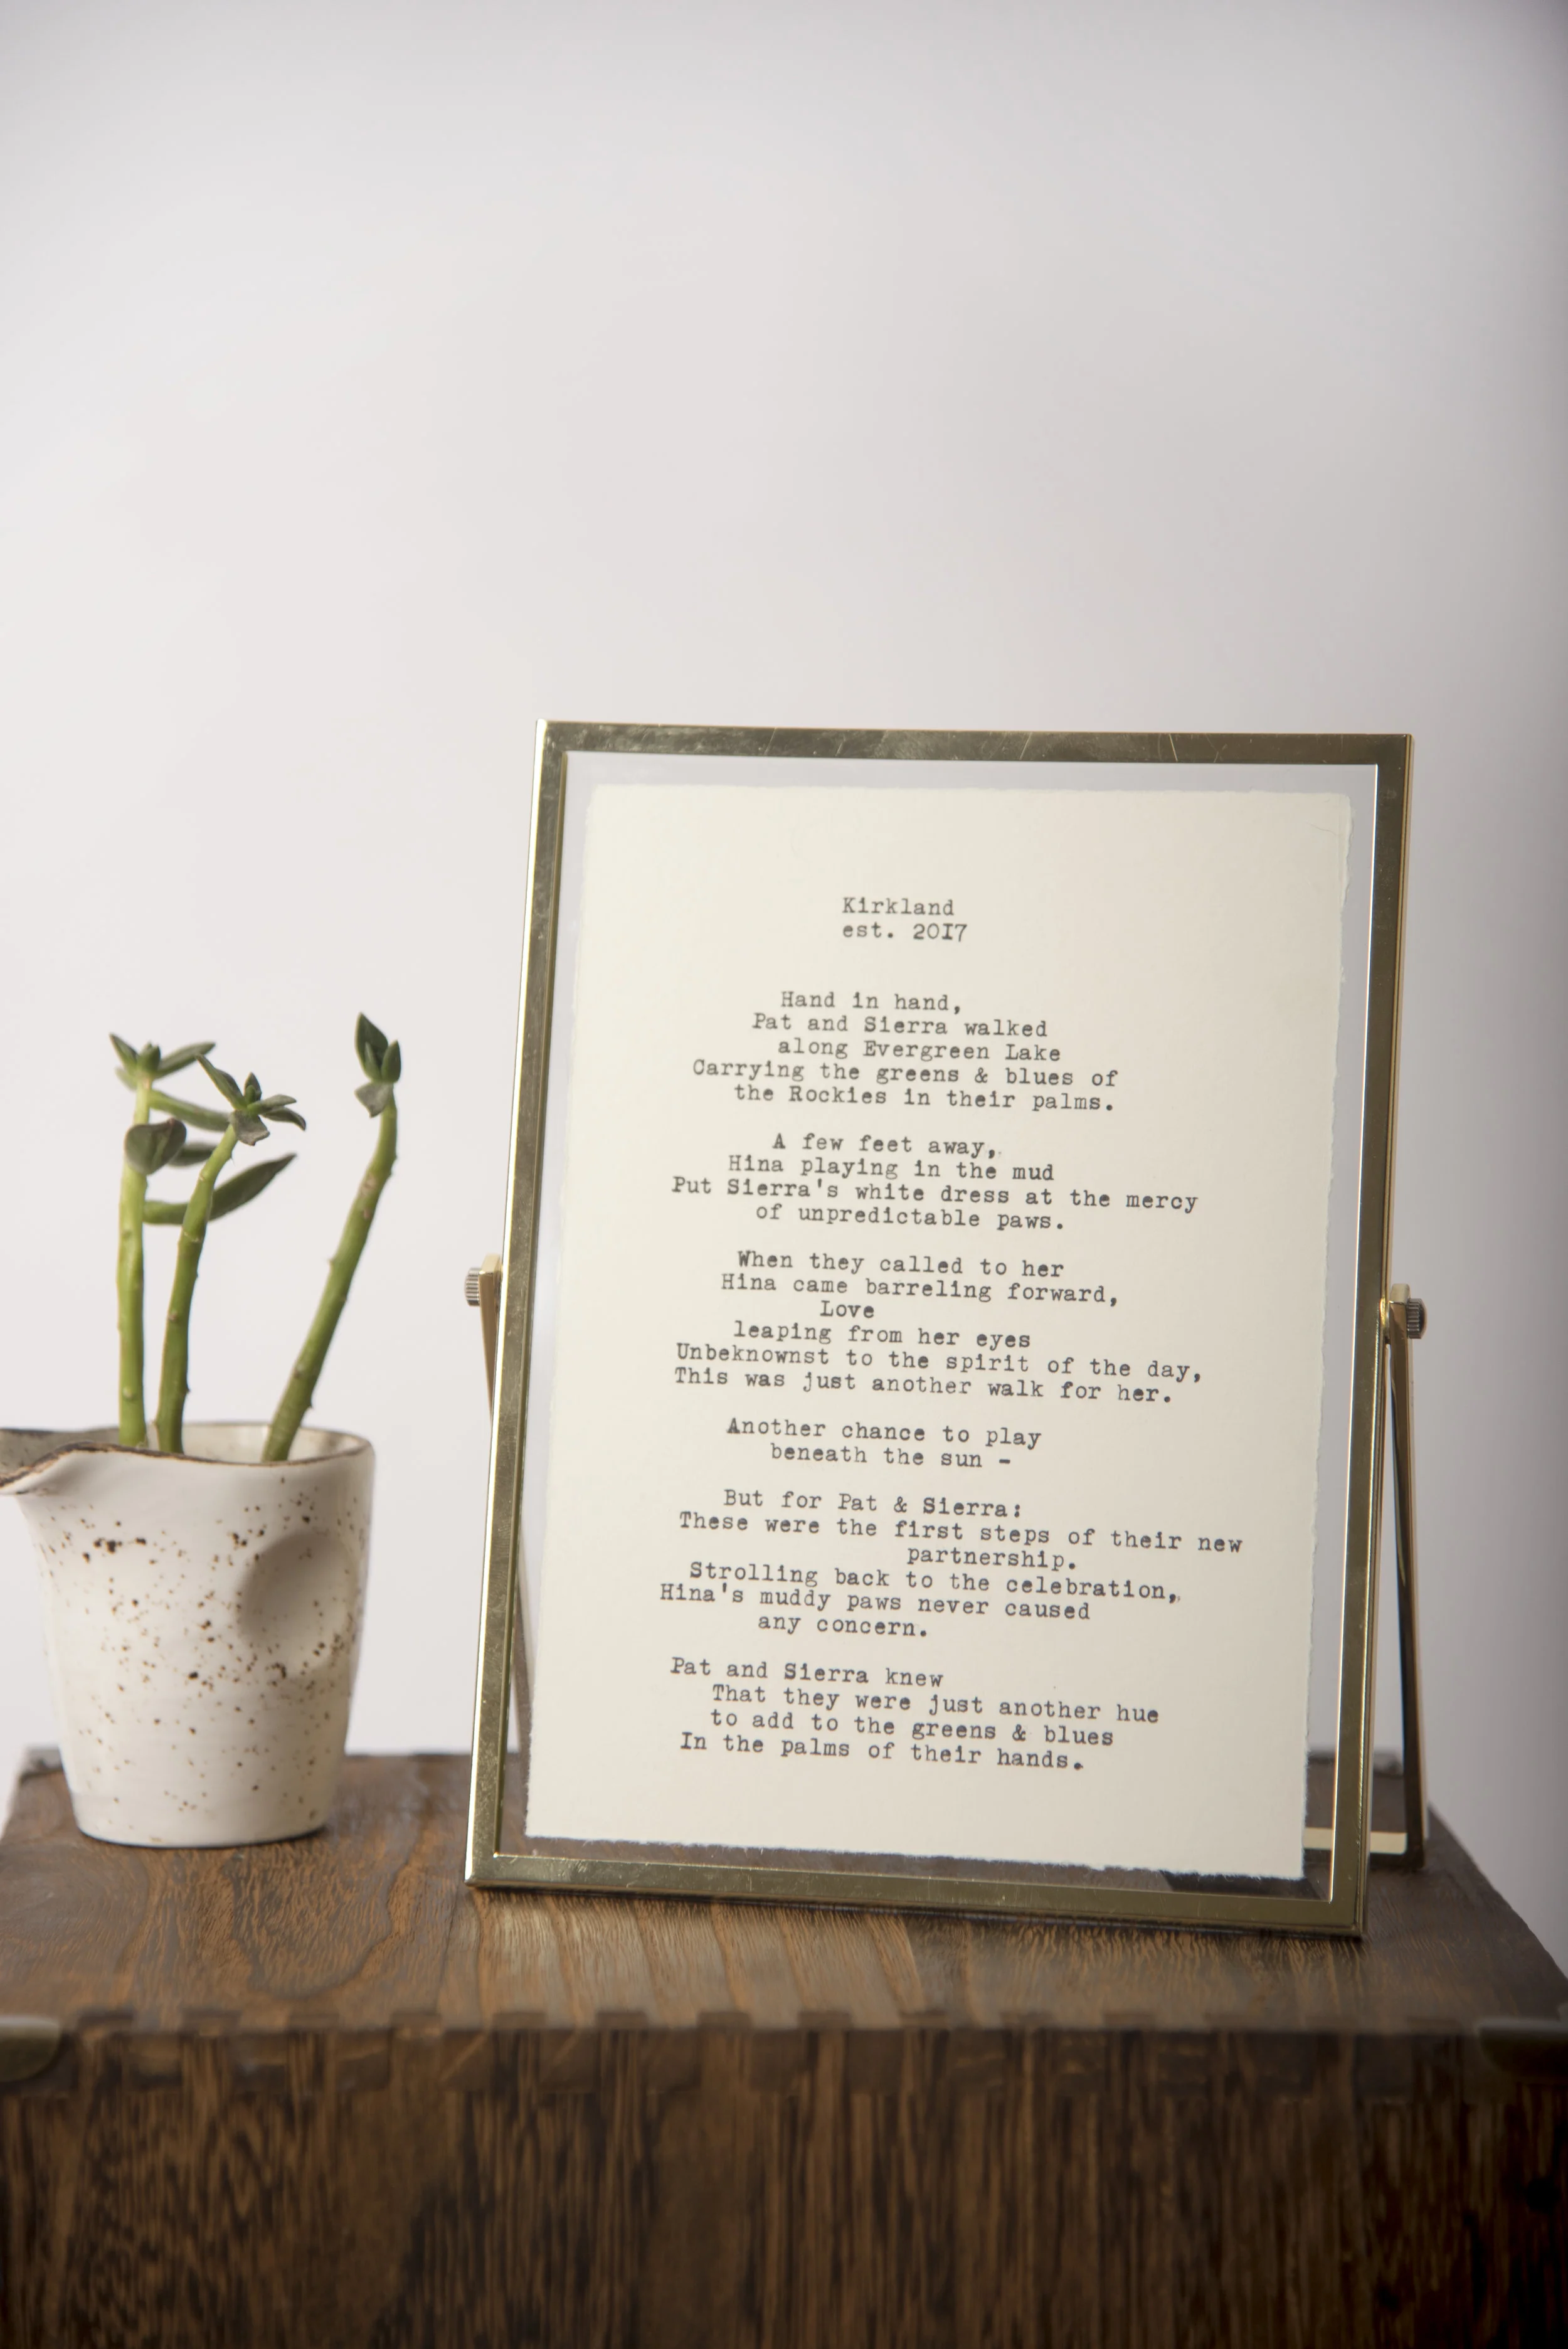 Kirkland
est. 2017
Hand in hand,
Pat and Sierra walked
along Evergreen Lake
Carrying the greens & blues of
the Rockies in their palms.
A few feet away,
Hina playing in the mud
Put Sierra's white dress at the mercy
of unpredictable paws.
When they called to her
Hina came barreling forward,
Love
leaping from her eyes
Unbeknownst to the spirit of the day,
This was just another walk for her.
Another chance to play
beneath the sun -
But for Pat & Sierra:
These were the first steps of their new
partnership.
Strolling back to the celebration,
Hina's muddy paws never caused
any concern.
Pat and Sierra knew
That they were just another hue
to add to the greens & blues
In the palms of their hands.